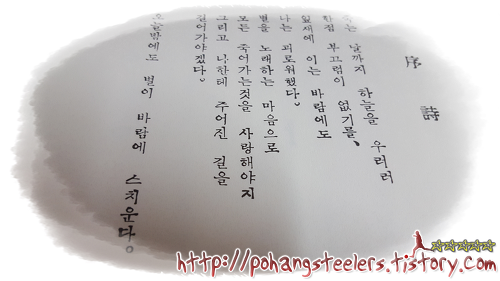 序詩
는 날까지 하늘을 우러러
한점 부끄럼이 없기를、
잎새에 이는 바람에도
나는 괴로워했다。
별을 노래하는 마음으로
모든 죽어가는것을 사랑해야지
그리고 나한테 주어진 길을
걸어가야겠다。
오늘밤에도 별이 바람에 스치운다。
http://pohangsteelers.tistory.com